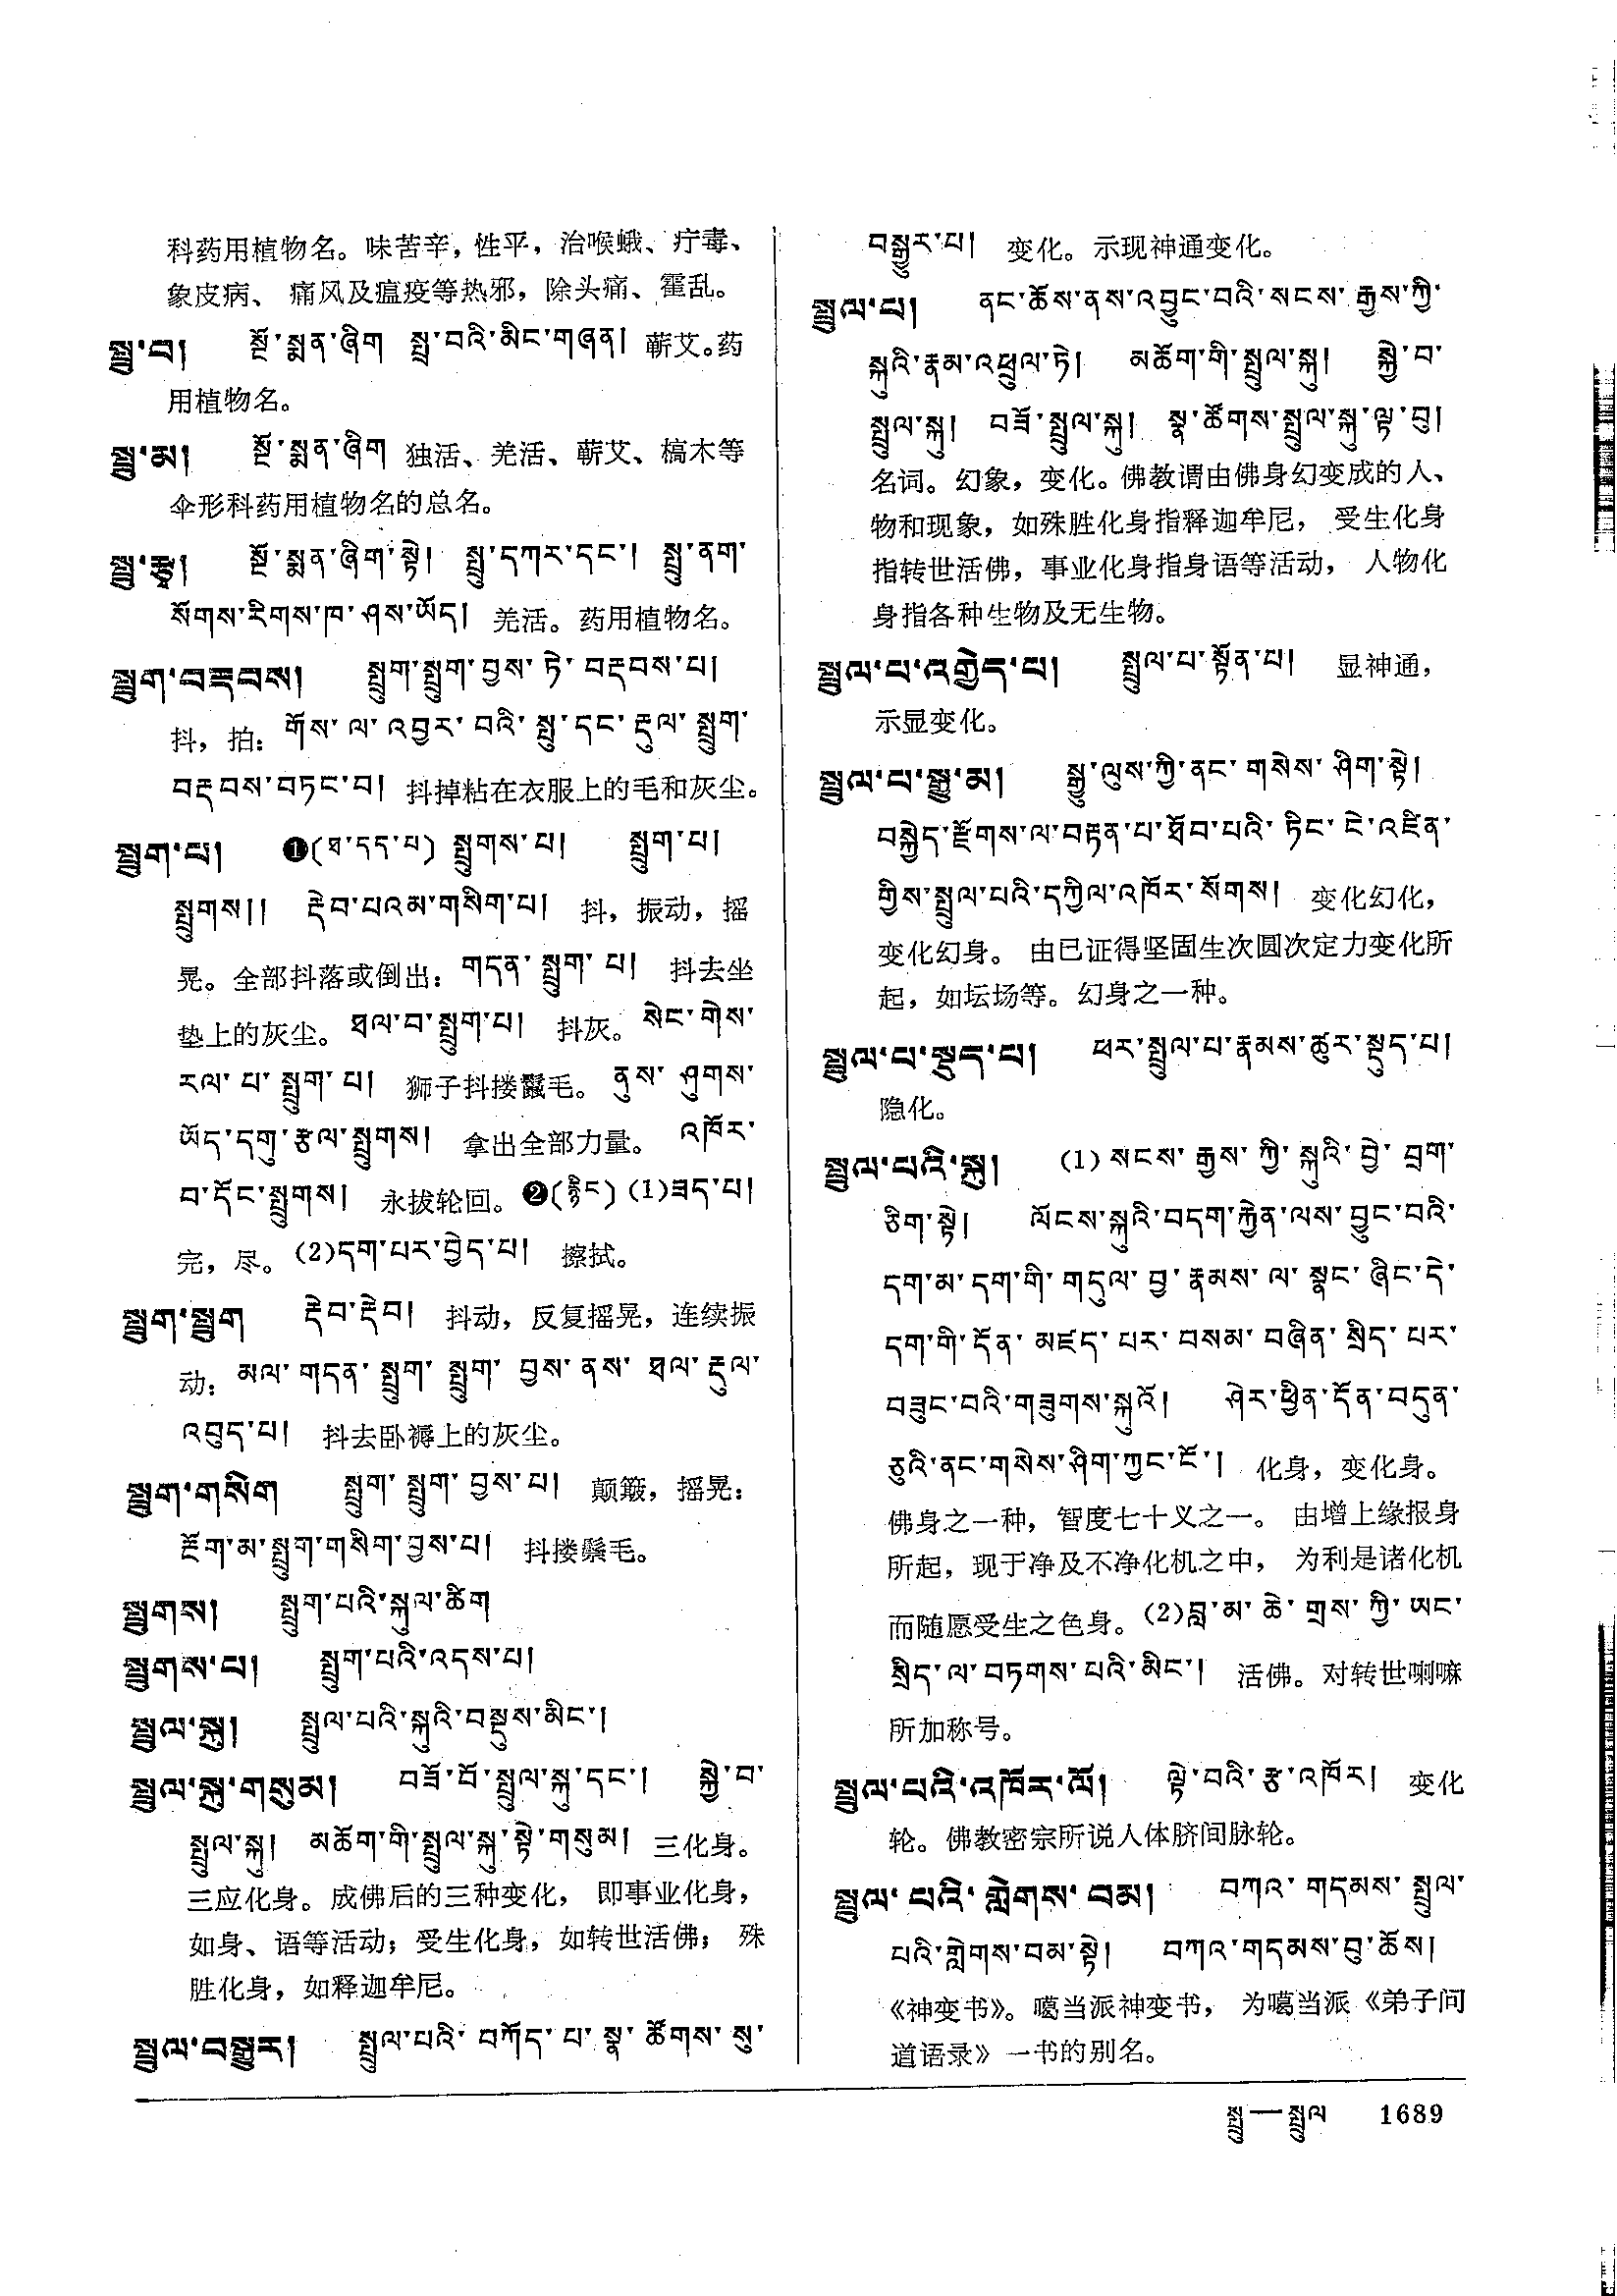 科药用植物名。味苦辛，性平，治喉蛾、疔毒、
象皮病、痛风及瘟疫等热邪，除头痛、霍乱。
སྤྲུ་བ། སྔོ་སྨན་ཞིག སྤྲ་བའི་མིང་གཞན། 蕲艾。药
用植物名。
སྤྲུ་མ། སྔོ་སྨན་ཞིག 独活、羌活、蕲艾、槁木等
伞形科药用植物名的总名。
སྤྲུ་རྩྭ། སྔོ་སྨན་ཞིག་སྟེ། སྤྲུ་དཀར་དང་། སྤྲུ་ནག་
སོགས་རིགས་ཁ་ཤས་ཡོད། 羌活。药用植物名。
སྤྲུག་བརྡབས། སྤྲུག་སྤྲུག་བྱས་ཏེ་བརྡབས་པ།
抖，拍：གོས་ལ་འབྱར་བའི་སྤུ་དང་རྡུལ་སྤྲུག་
བརྡབས་བཏང་བ། 抖掉粘在衣服上的毛和灰尘。
སྤྲུག་པ། ❶(ཐ་དད་པ) སྤྲུགས་པ། སྤྲུག་པ།
སྤྲུགས།། རྡེབ་པའམ་གསིག་པ། 抖，振动，摇
晃。全部抖落或倒出：གདན་སྤྲུག་པ། 抖去坐
垫上的灰尘。ཐལ་བ་སྤྲུག་པ། 抖灰。སེང་གེས་
རལ་པ་སྤྲུག་པ། 狮子抖搂鬣毛。ནུས་ཤུགས་
ཡོད་དགུ་རྩལ་སྤྲུགས། 拿出全部力量。འཁོར་
བ་དོང་སྤྲུགས། 永拔轮回。❷(རྙིང) (1)ཟད་པ།
完，尽。(2)དག་པར་བྱེད་པ། 擦拭。
སྤྲུག་སྤྲུག རྡེབ་རྡེབ། 抖动，反复摇晃，连续振
动：མལ་གདན་སྤྲུག་སྤྲུག་བྱས་ནས་ཐལ་རྡུལ་
འབུད་པ། 抖去卧褥上的灰尘。
སྤྲུག་གསིག སྤྲུག་སྤྲུག་བྱས་པ། 颠簸，摇晃：
རྔོག་མ་སྤྲུག་གསིག་བྱས་པ། 抖搂鬃毛。
སྤྲུགས། སྤྲུག་པའི་སྐུལ་ཚིག
སྤྲུགས་པ། སྤྲུག་པའི་འདས་པ།
སྤྲུལ་སྐུ། སྤྲུལ་པའི་སྐུའི་བསྡུས་མིང་།
སྤྲུལ་སྐུ་གསུམ། བཟོ་བོ་སྤྲུལ་སྐུ་དང་། སྐྱེ་བ་
སྤྲུལ་སྐུ། མཆོག་གི་སྤྲུལ་སྐུ་སྟེ་གསུམ། 三化身。
三应化身。成佛后的三种变化，即事业化身，
如身、语等活动；受生化身，如转世活佛；殊
胜化身，如释迦牟尼。
སྤྲུལ་བསྒྱུར། སྤྲུལ་པའི་བཀོད་པ་སྣ་ཚོགས་སུ་
བསྒྱུར་པ། 变化。示现神通变化。
སྤྲུལ་པ། ནང་ཆོས་ནས་འབྱུང་བའི་སངས་རྒྱས་ཀྱི་
སྐུའི་རྣམ་འཕྲུལ་ཏེ། མཆོག་གི་སྤྲུལ་སྐུ། སྐྱེ་བ་
སྤྲུལ་སྐུ། བཟོ་སྤྲུལ་སྐུ། སྣ་ཚོགས་སྤྲུལ་སྐུ་ལྟ་བུ།
名词。幻象，变化。佛教谓由佛身幻变成的人、
物和现象，如殊胜化身指释迦牟尼，受生化身
指转世活佛，事业化身指身语等活动，人物化
身指各种生物及无生物。
སྤྲུལ་པ་འགྱེད་པ། སྤྲུལ་པ་སྟོན་པ། 显神通，
示显变化。
སྤྲུལ་པ་སྒྱུ་མ། སྒྱུ་ལུས་ཀྱི་ནང་གསེས་ཤིག་སྟེ།
བསྐྱེད་རྫོགས་ལ་བརྟན་པ་ཐོབ་པའི་ཏིང་ངེ་འཛིན་
གྱིས་སྤྲུལ་པའི་དཀྱིལ་འཁོར་སོགས། 变化幻化，
变化幻身。由已证得坚固生次圆次定力变化所
起，如坛场等。幻身之一种。
སྤྲུལ་པ་སྡུད་པ། ཕར་སྤྲུལ་པ་རྣམས་ཚུར་སྡུད་པ།
隐化。
སྤྲུལ་པའི་སྐུ། (1)སངས་རྒྱས་ཀྱི་སྐུའི་བྱེ་བྲག་
ཅིག་སྟེ། ལོངས་སྐུའི་བདག་རྐྱེན་ལས་བྱུང་བའི་
དག་མ་དག་གི་གདུལ་བྱ་རྣམས་ལ་སྣང་ཞིང་དེ་
དག་གི་དོན་མཛད་པར་བསམ་བཞིན་སྲིད་པར་
བཟུང་བའི་གཟུགས་སྐུའོ། ཤེར་ཕྱིན་དོན་བདུན་
ཅུའི་ནང་གསེས་ཤིག་ཀྱང་ངོ་། 化身，变化身。
佛身之一种，智度七十义之一。由增上缘报身
所起，现于净及不净化机之中，为利是诸化机
而随愿受生之色身。(2)བླ་མ་ཆེ་གྲས་ཀྱི་ཡང་
སྲིད་ལ་བཏགས་པའི་མིང་། 活佛。对转世喇嘛
所加称号。
སྤྲུལ་པའི་འཁོར་ལོ། ལྟེ་བའི་རྩ་འཁོར། 变化
轮。佛教密宗所说人体脐间脉轮。
སྤྲུལ་པའི་གླེགས་བམ། བཀའ་གདམས་སྤྲུལ་
པའི་གླེགས་བམ་སྟེ། བཀའ་གདམས་བུ་ཆོས།
《神变书》。噶当派神变书，为噶当派《弟子问
道语录》一书的别名。
སྤྲུ—སྤྲུལ 1689